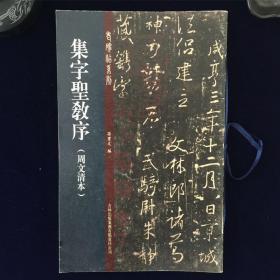 咸亨三年十二月八日京城
法侶建立 文林郎諸葛
神力勒石 武騎尉朱靜
藏鐫字
集字聖教序
（周文清本）